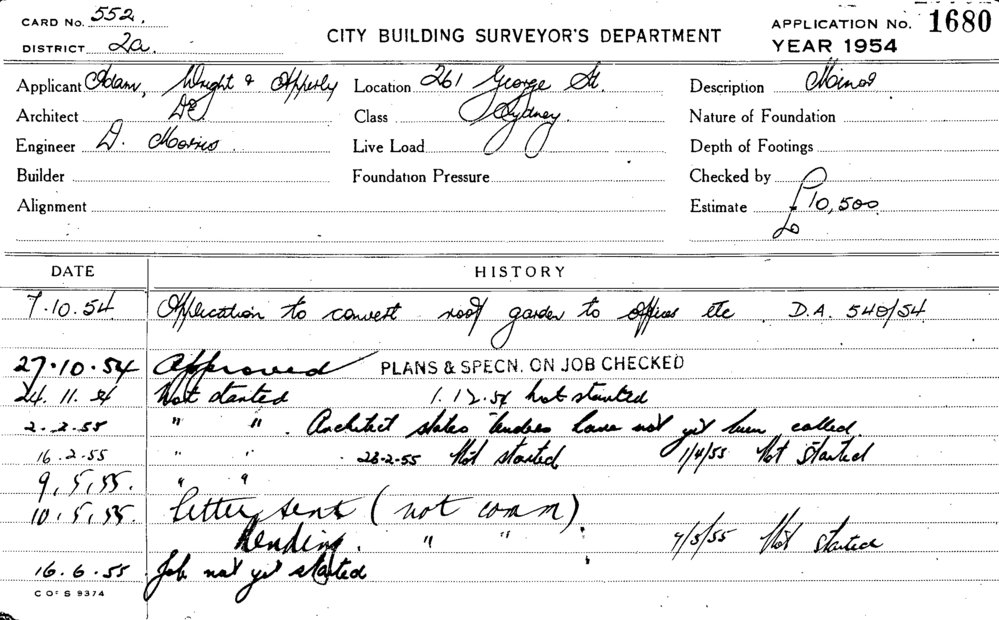 CARD No. 552. CITY BUILDING SURVEYOR'S DEPARTMENT APPLICATION No. 1680
DISTRICT 2a. YEAR 1954
Applicant Adam, Wright & Apperly Location 261 George St. Description Minor
Architect Do Class Sydney. Nature of Foundation
Engineer D. Morris Live Load Depth of Footings
Builder Foundation Pressure Checked by
Alignment Estimate £10,500
DATE HISTORY
7.10.54 Application to convert roof garden to offices etc D.A. 540/54
27.10.54 Approved PLANS & SPECN. ON JOB CHECKED
24.11.54 Not started 1.12.54 not started
2.2.55 " " . Architect states tenders have not yet been called.
16.2.55 " " 23-2-55 Not started 1/4/55 Not Started
9.5.55. " "
10.5.55. Letter sent (not comm).
Pending. " " 7/5/55 Not started
16.6.55 Job not yet started
C OF S 9374